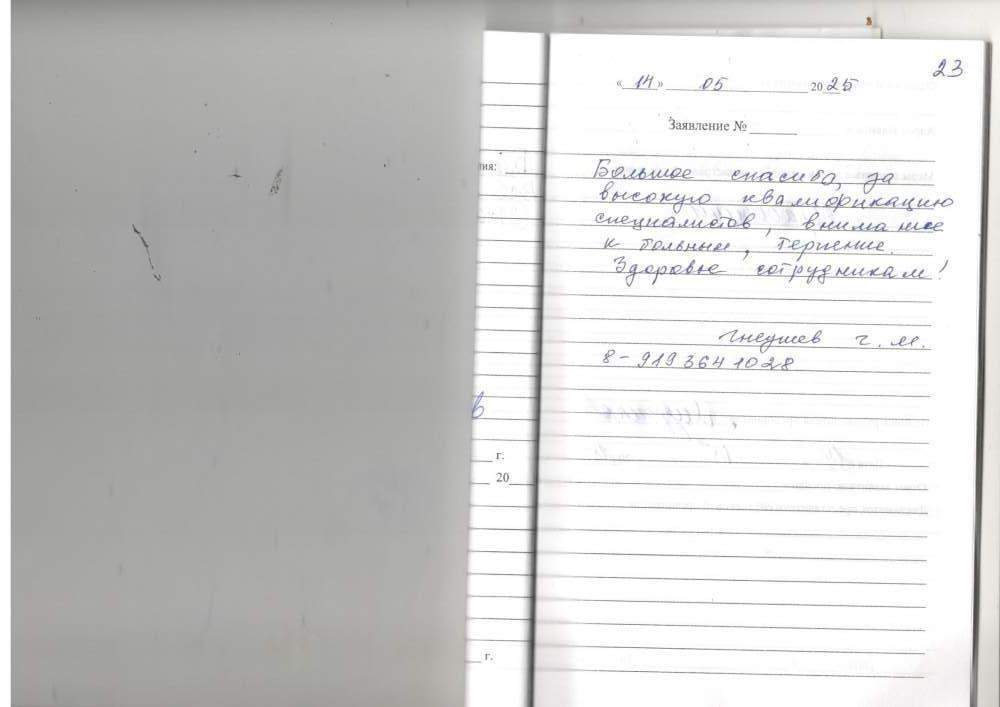 23
«14» 05 2025
Заявление № ______
Большое спасибо, за
высокую квалификацию
специалистов, внимание
к больным, терпение.
Здоровье сотрудникам!
Гнеушев Г. М.
8-919 364 10 28
ия:
в
г.
20
г.